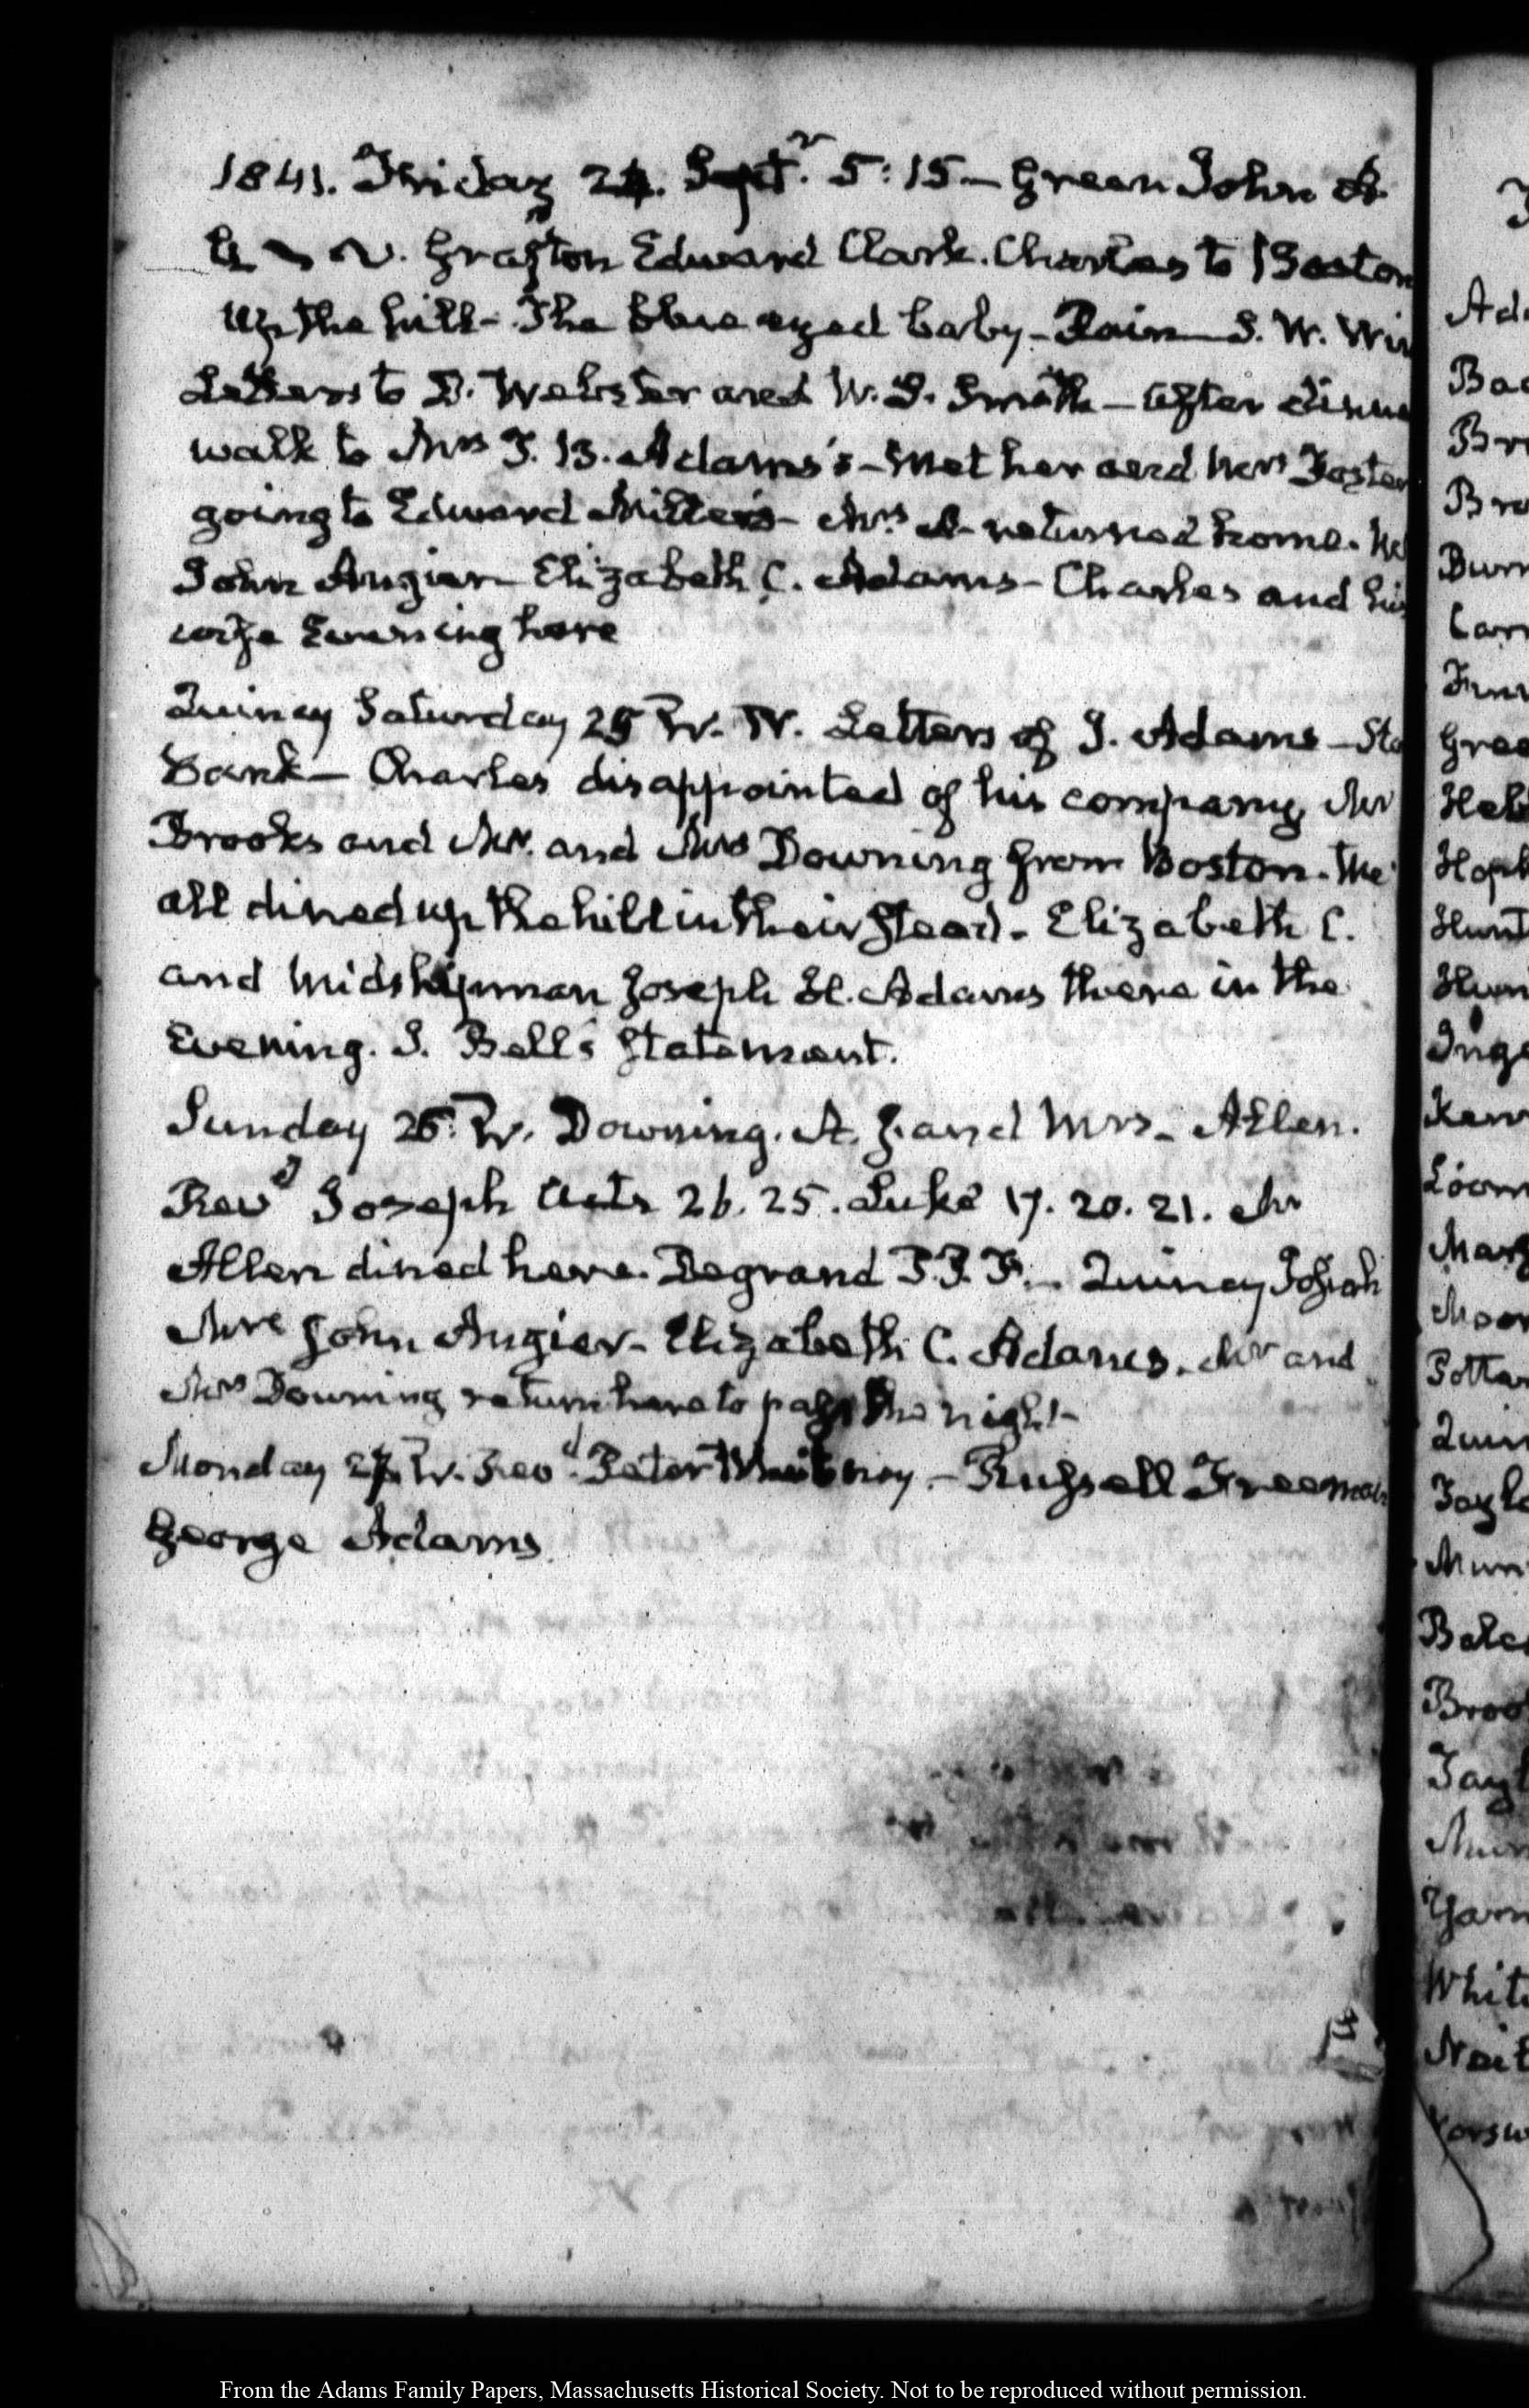 1841. Friday 24. Septr. 5:15 — Green John
Grafton Edward Clark. Charles to Boston
Up the hill — The blue eyed baby — Rain S. W. Win
Letters to D. Webster and W. S. Smith — after dinne
walk to Mrs T. B. Adams's — met her and Mrs Foster
going to Edward Miller's — Mrs A returned home.
John Angier Elizabeth C. Adams — Charles and his
wife Evening here
Quincy Saturday 25 IV. IV. Letters of J. Adams — Sta
Bank — Charles disappointed of his company, Mr
Brooks and Mr. and Mrs Downing from Boston. We
all dined up the hill in their stead. Elizabeth C.
and Midshipman Joseph H. Adams there in the
Evening. J. Bell's Statement.
Sunday 26. IV. Downing. A. J. and Mrs — Allen.
Revd Joseph Acts 26. 25. Luke 17. 20. 21. Mr
Allen dined here. Degrand P. P. F. — Quincy Josiah
Mrs John Angier — Elizabeth C. Adams. Mr and
Mrs Downing return here to pass the night —
Monday 27. IV. Revd. Peter Whitney. — Russell Freeman
George Adams
Ad
Bac
Br
Bro
Burr
Carr
Gree
Heb
Hopk
Hunt
Hun
Inge
Loom
Moor
Potter
Quin
Tayl
Mun
Balc
Broo
Tayl
Whit
From the Adams Family Papers, Massachusetts Historical Society. Not to be reproduced without permission.